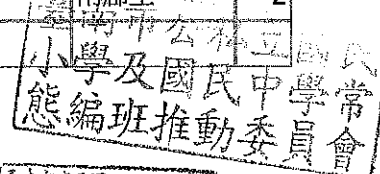 2
臺南市公私立國民
小學及國民中學常
態編班推動委員會